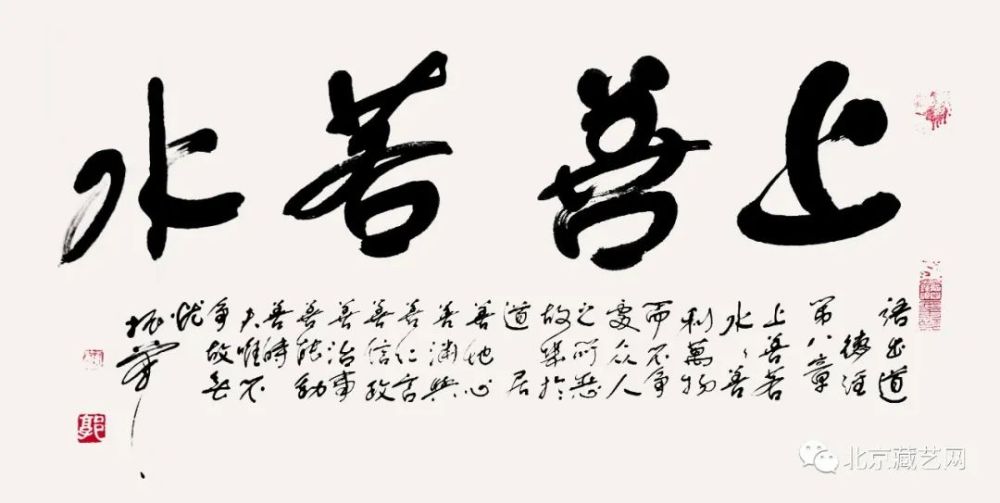 上善若水
語出道
德經
第八章
上善若
水〻善
利萬物
而不爭
處众人
之所惡
故幾於
道居
善地心
善淵與
善仁言
善信政
善治事
善能動
善時
夫唯不
爭故無
郭
北京藏艺网